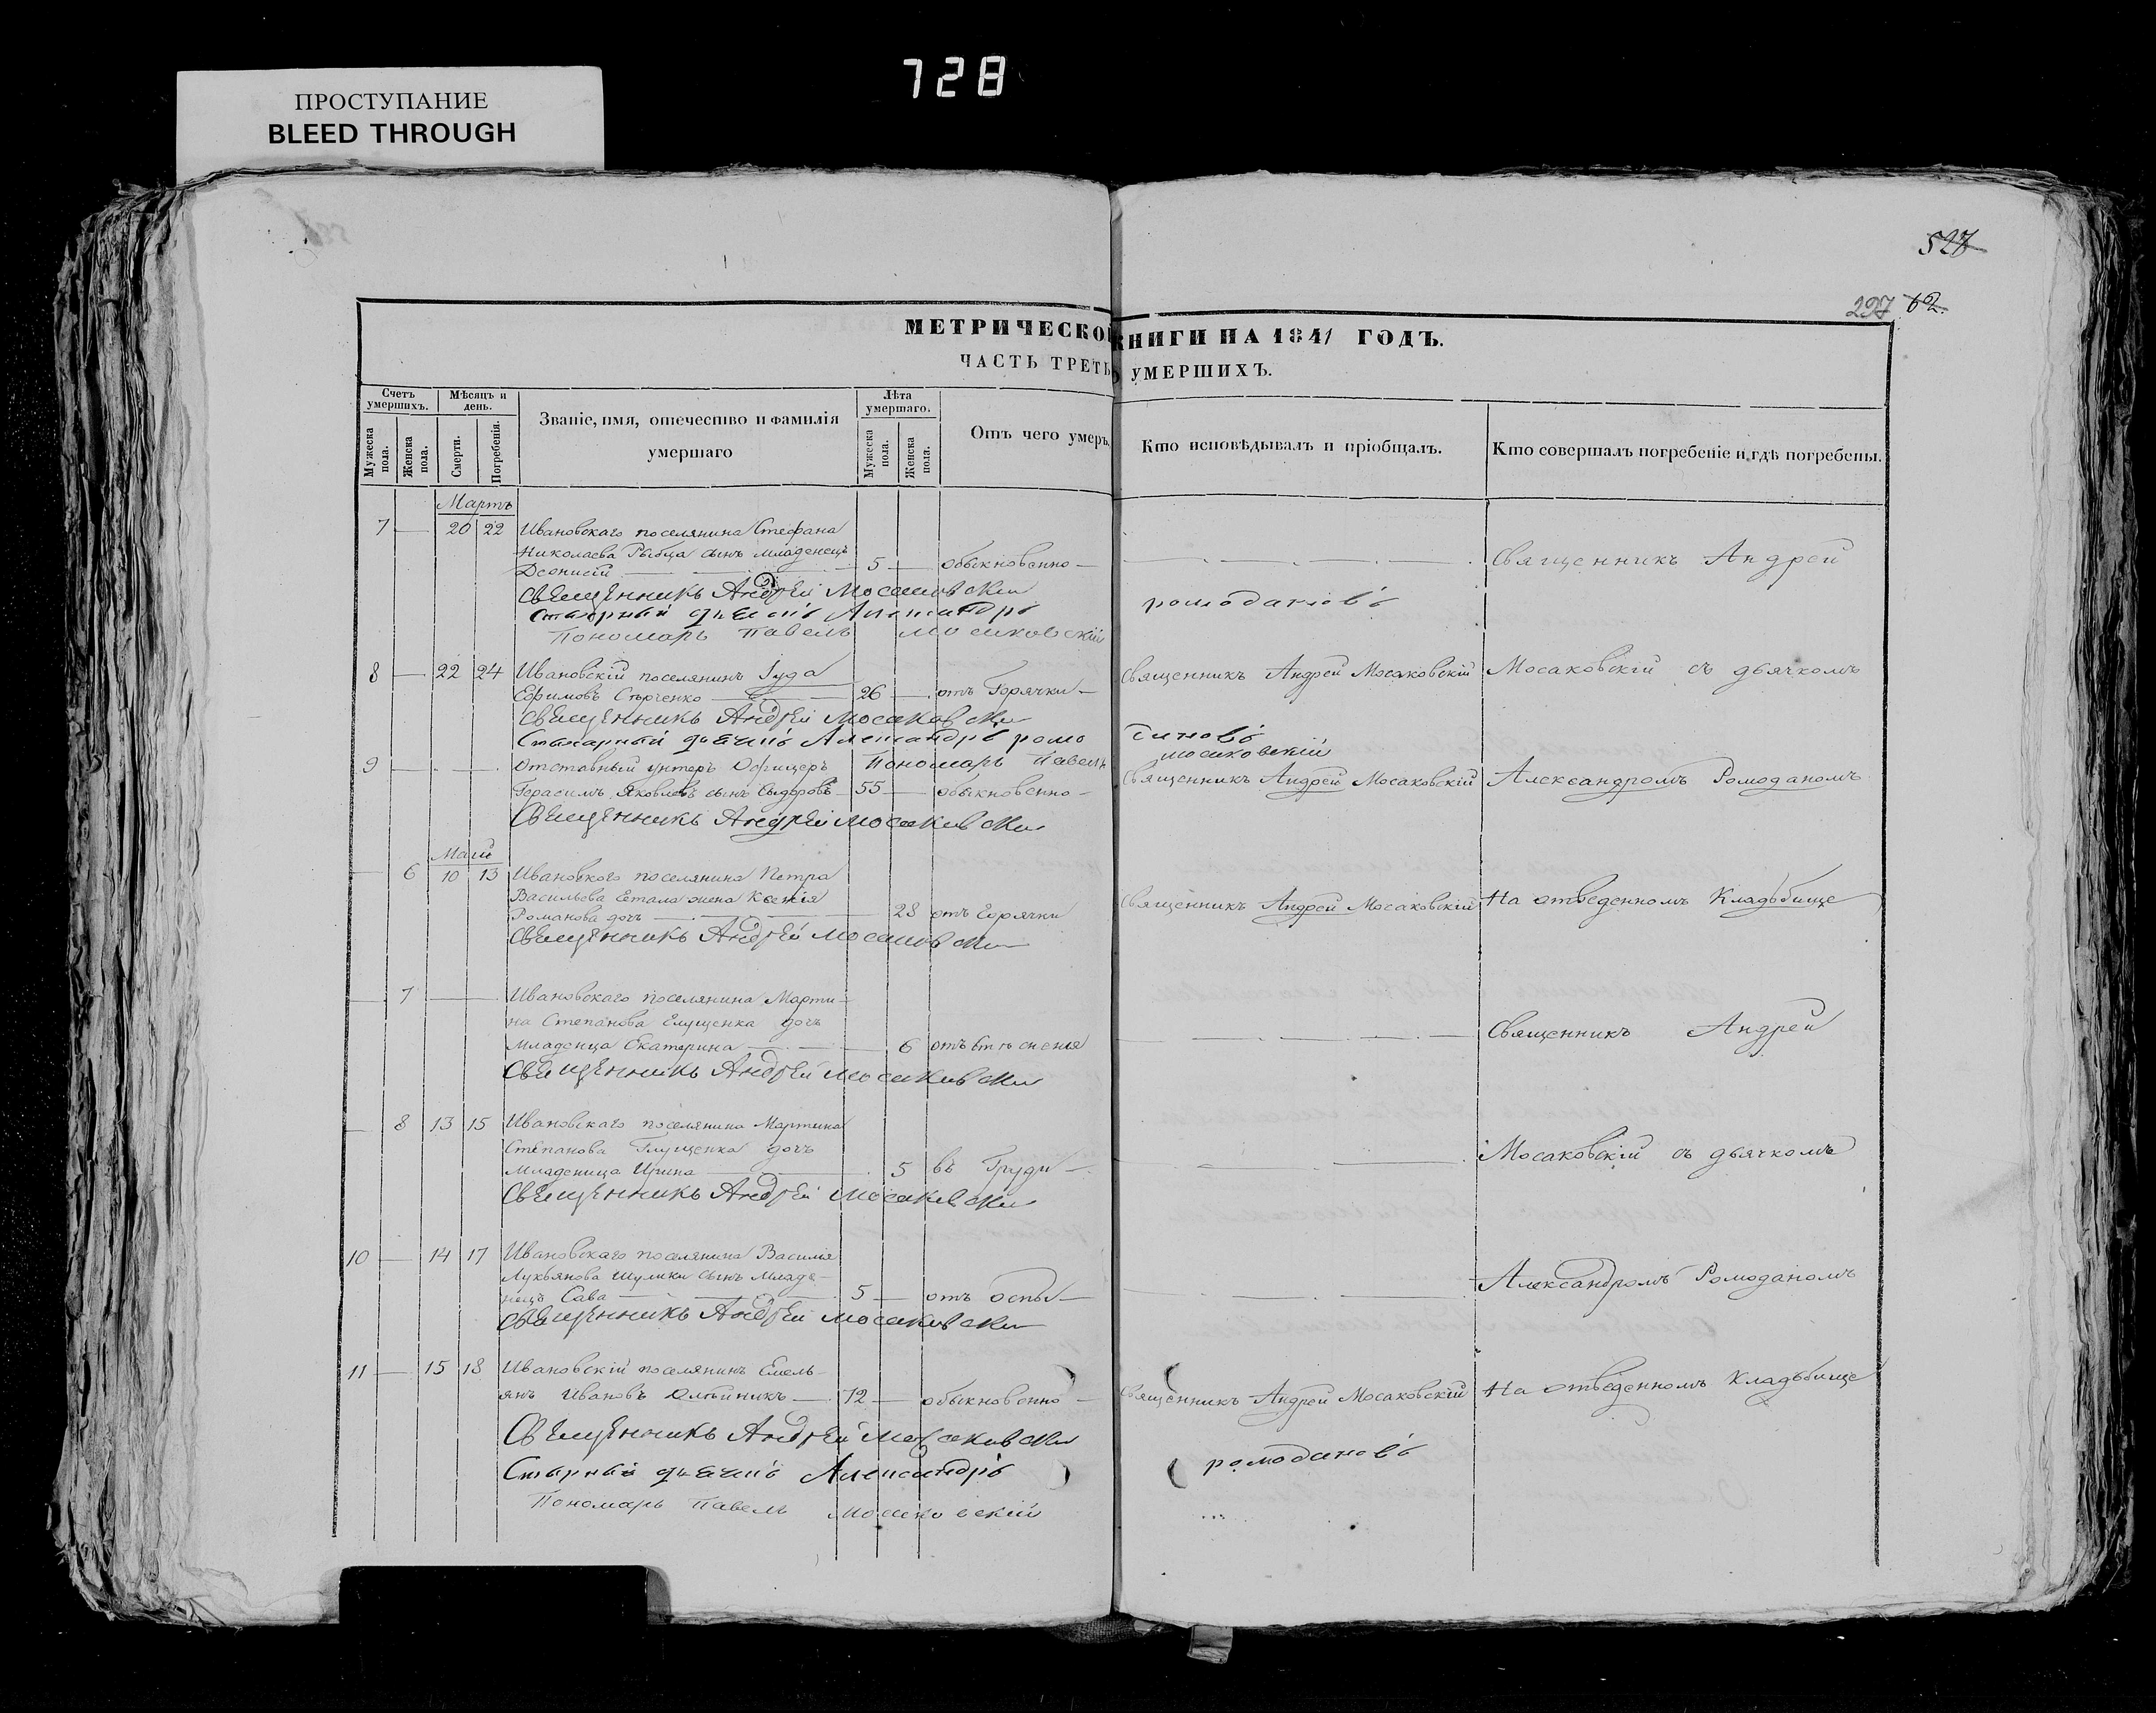 728
ПРОСТУПАНИЕ
BLEED THROUGH
527
297 62.
МЕТРИЧЕСКОЙ КНИГИ НА 1841 ГОДЪ.
ЧАСТЬ ТРЕТЬ О УМЕРШИХЪ.
Счетъ умершихъ.
Мужеска пола.
Женска пола.
Мѣсяцъ и день.
Смерти.
Погребенія.
Званіе, имя, отечество и фамилія умершаго
Лѣта умершаго.
Мужеска пола.
Женска пола.
Отъ чего умеръ.
Кто исповѣдывалъ и пріобщалъ.
Кто совершалъ погребеніе и гдѣ погребены.
Мартъ
7 — 20 22 Ивановскаго поселянина Стефана
Николаева Рыбца сынъ младенецъ
Деонисій — 5 — обыкновенно — Священникъ Андрей
Священникъ Андрей Мосаковски
Александръ ромодановъ
Пономарь Павелъ Мосаковскій
8 — 22 24 Ивановскій поселянинъ Іуда
Ефимовъ — 26 — отъ Горячки — Священникъ Андрей Мосаковскій Мосаковскій съ дьячкомъ
Священникъ Андрей Мосаковски
Стихарный дьячикъ Александръ ромодановъ
Пономарь Павелъ Мосаковскій
9 — Отставный унтеръ Офицеръ
Герасимъ Яковлевъ сынъ Сидоровъ 55 — обыкновенно — Священникъ Андрей Мосаковскій Александромъ Ромоданомъ
Священникъ Андрей Мосаковски
Маій
— 6 10 13 Ивановского поселянина Петра
Васильева жена Ксенія
Романова дочь — 28 отъ Горячки Священникъ Андрей Мосаковскій На отведенномъ Кладьбище
Священникъ Андрей Мосаковски
— 7 — Ивановскаго поселянина Марти-
на Степанова Глущенка дочь
Младенца Екатерина — 6 Священникъ Андрей
Священникъ Андрей Мосаковски
— 8 13 15 Ивановскаго поселянина Мартина
Степанова Глущенка дочь
Младеница Ирина — 5 въ Груди — Мосаковскій съ дьячкомъ
Священникъ Андрей Мосаковски
10 — 14 17 Ивановскаго поселянина Василія
Лукьянова Шулики сынъ Младе-
нецъ Сава — 5 — отъ Оспы — Александромъ Ромоданомъ
Священникъ Андрей Мосаковски
11 — 15 18 Ивановскій поселянинъ Емель-
янъ Ивановъ Олѣйникъ — 72 — обыкновенно — Священникъ Андрей Мосаковскій На отведенномъ Кладьбище
Священникъ Андрей Мосаковски
Александръ ромодановъ
Пономарь Павелъ Мосаковскій